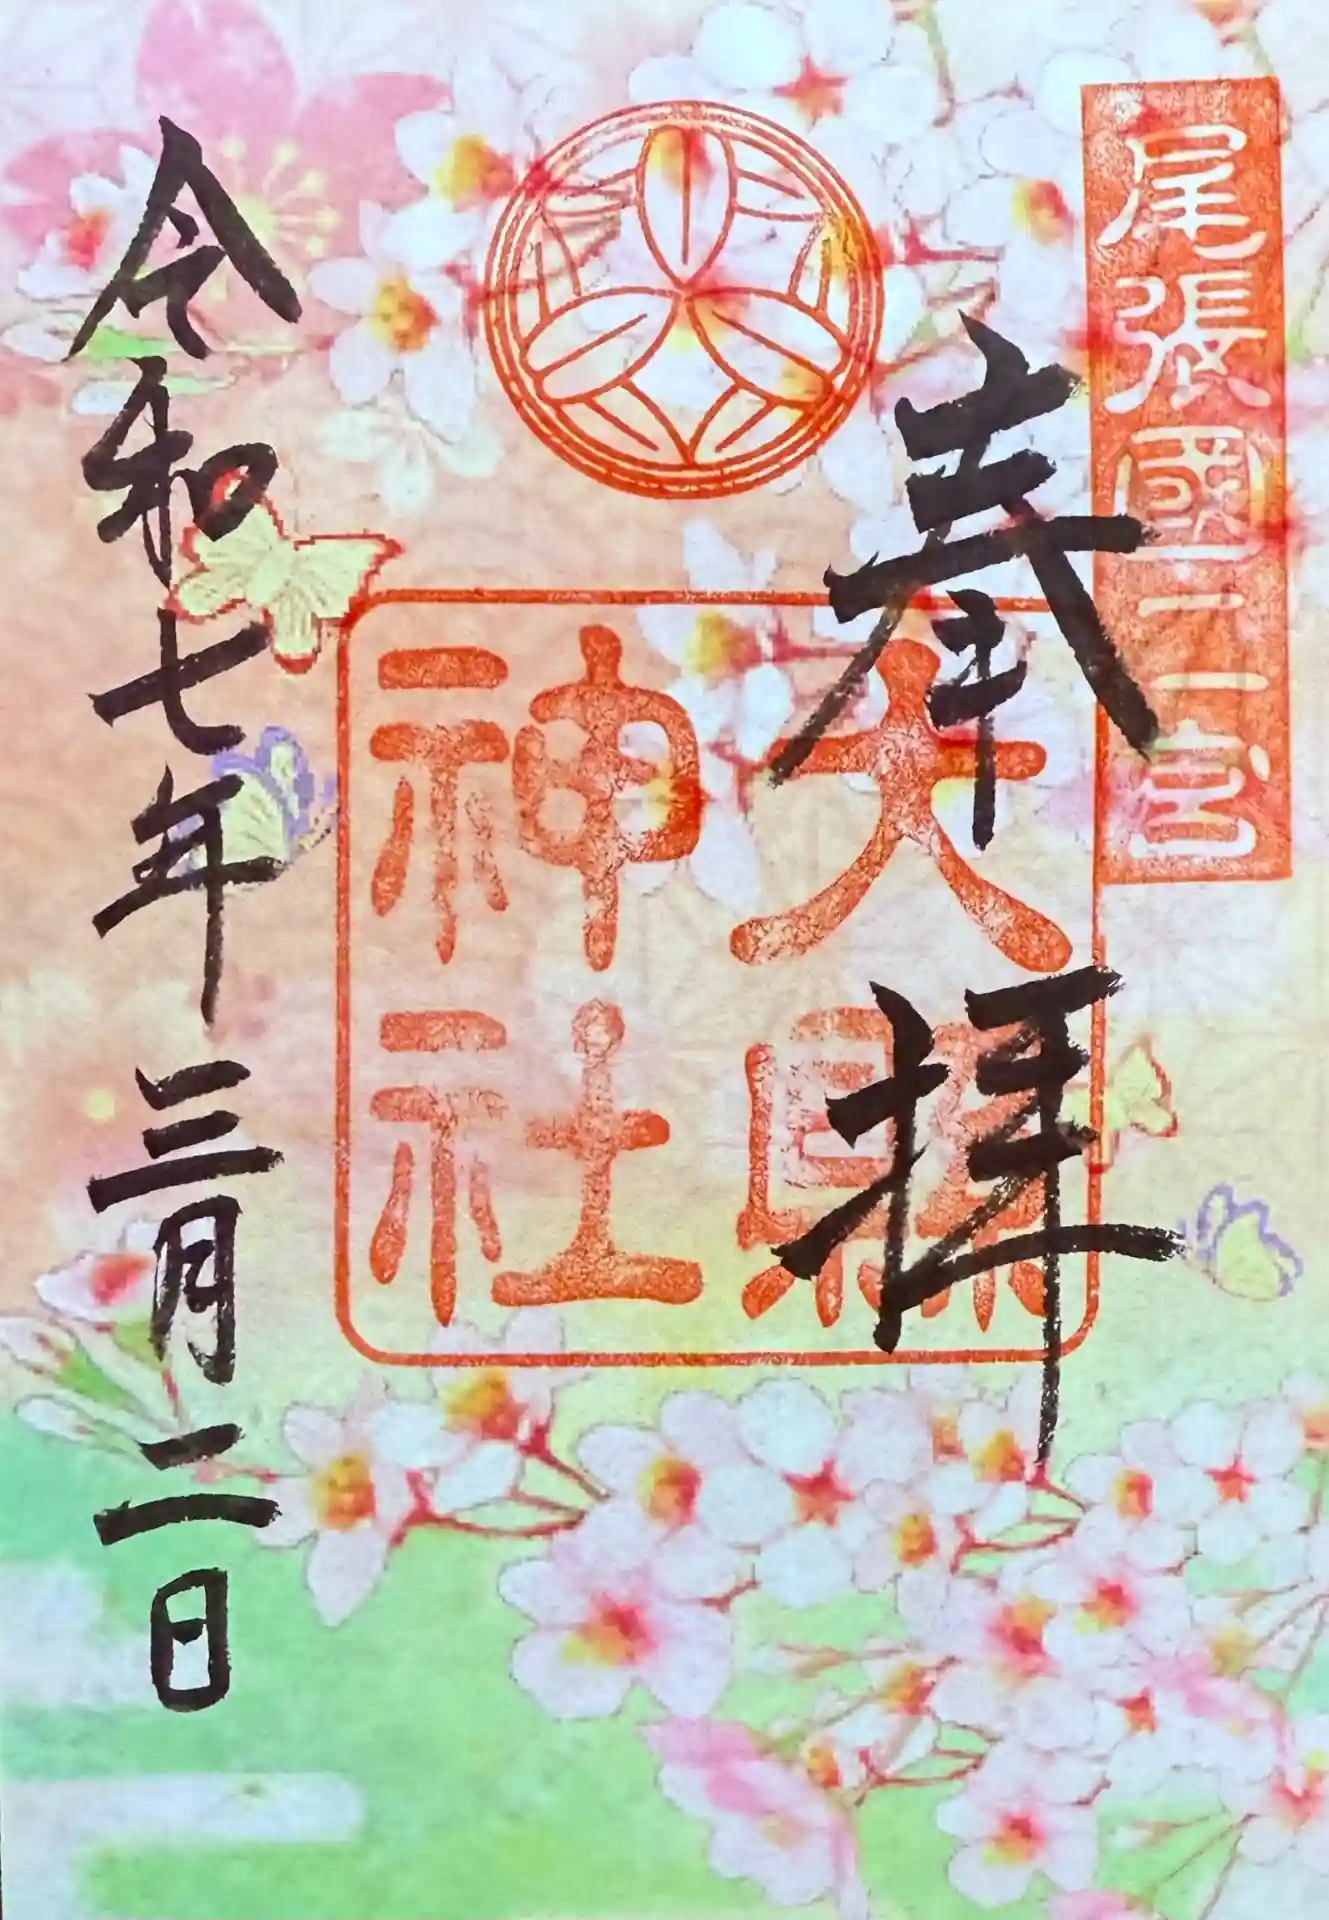 尾張國二宮
奉拝
大縣
神社
令和七年三月二日